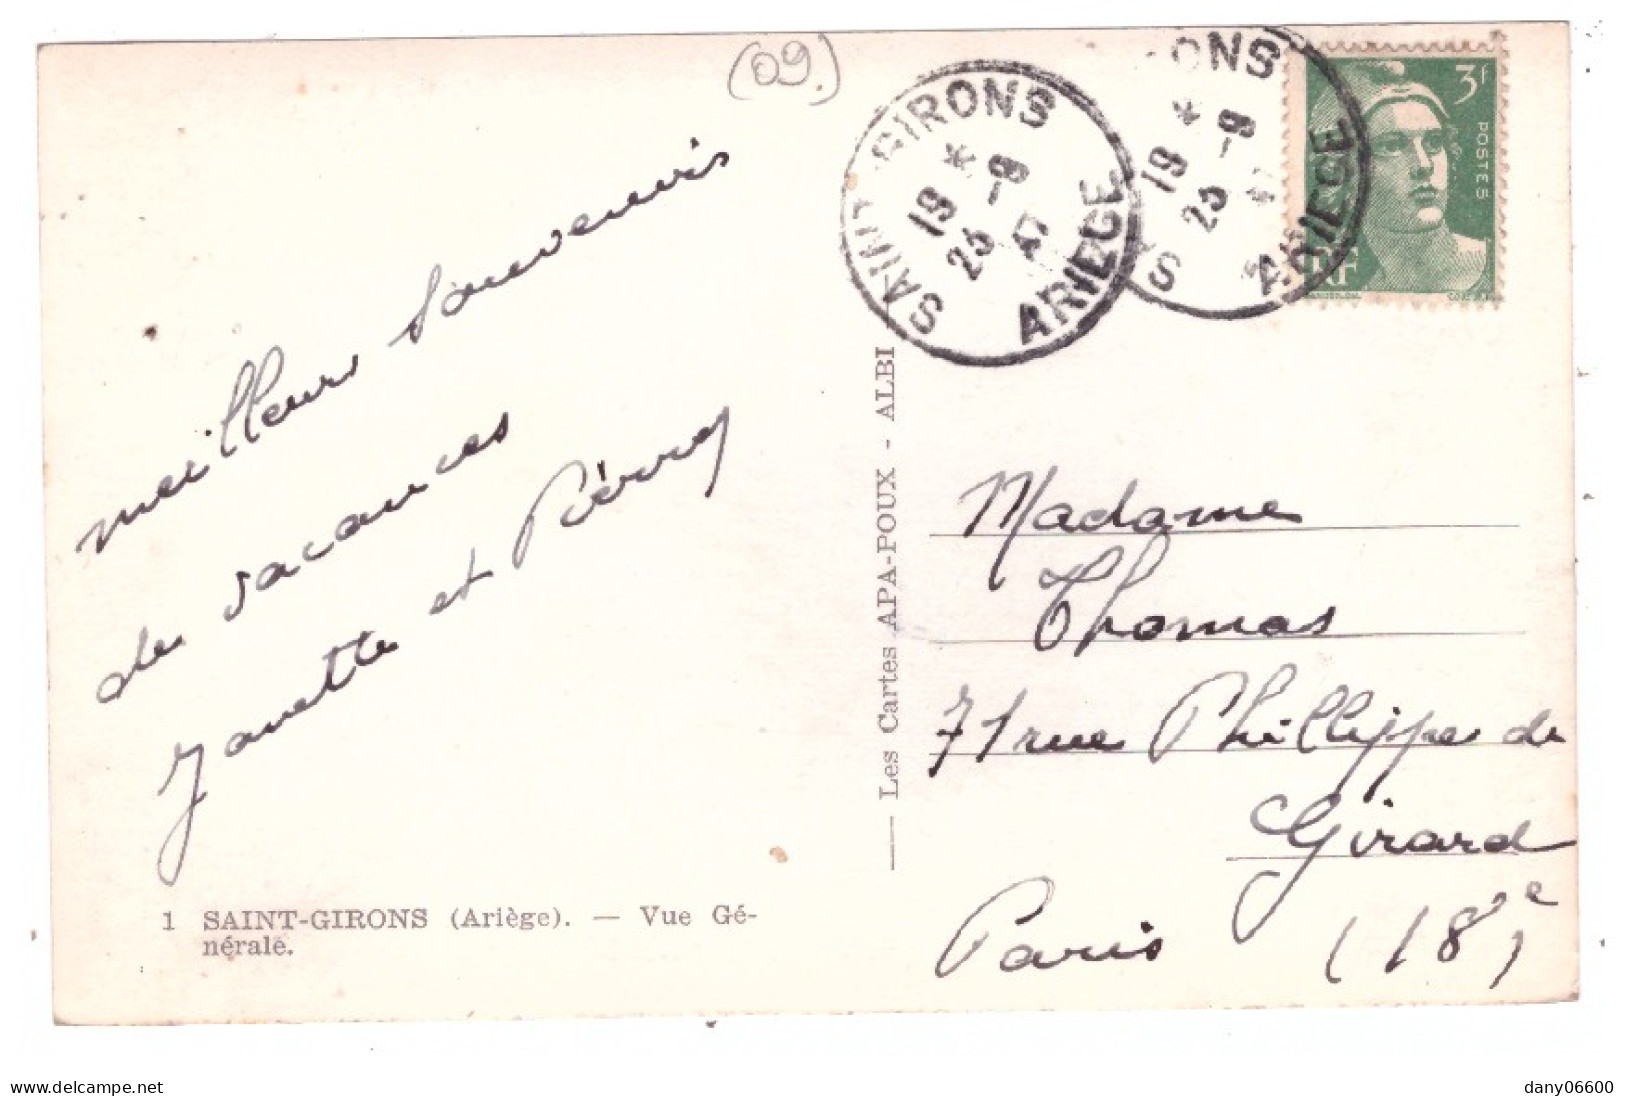 (09)
SAINT-GIRONS
* 
19 -9
23 47
ARIEGE
ONS
*
19 -9
23
S ARIEGE
3F
POSTES
RF
meilleurs souvenirs
de vacances
Janette et Pierre
Les Cartes APA-POUX - ALBI
Madame
Thomas
71 rue Phillippe de
Girard
Paris (18e)
1 SAINT-GIRONS (Ariège). — Vue Gé-
nérale.
www.delcampe.net
dany06600